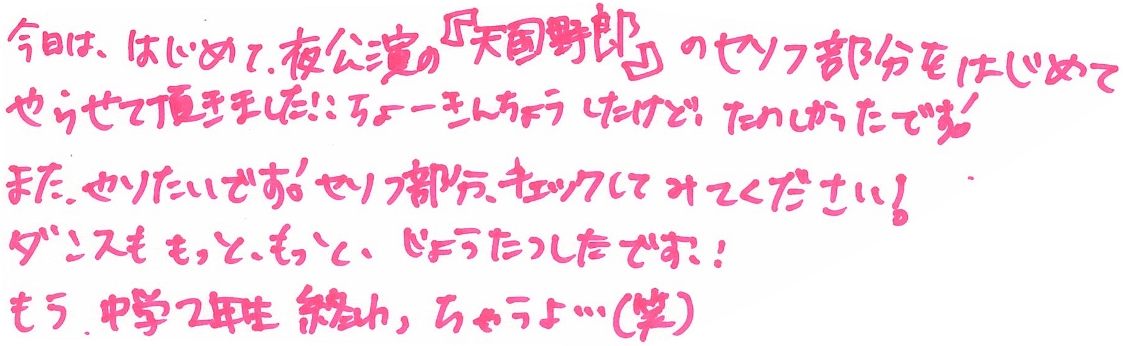 今日は、はじめて、夜公演の『天国野郎』のセリフ部分をはじめて
やらせて頂きました!!ちょーきんちょうしたけど、たのしかったです!
また、やりたいです!セリフ部分、チェックしてみてください!
ダンスももっと、もっと、じょうたつしたです!!
もう、中学2年生 終わ,ちゃうよ…(笑)